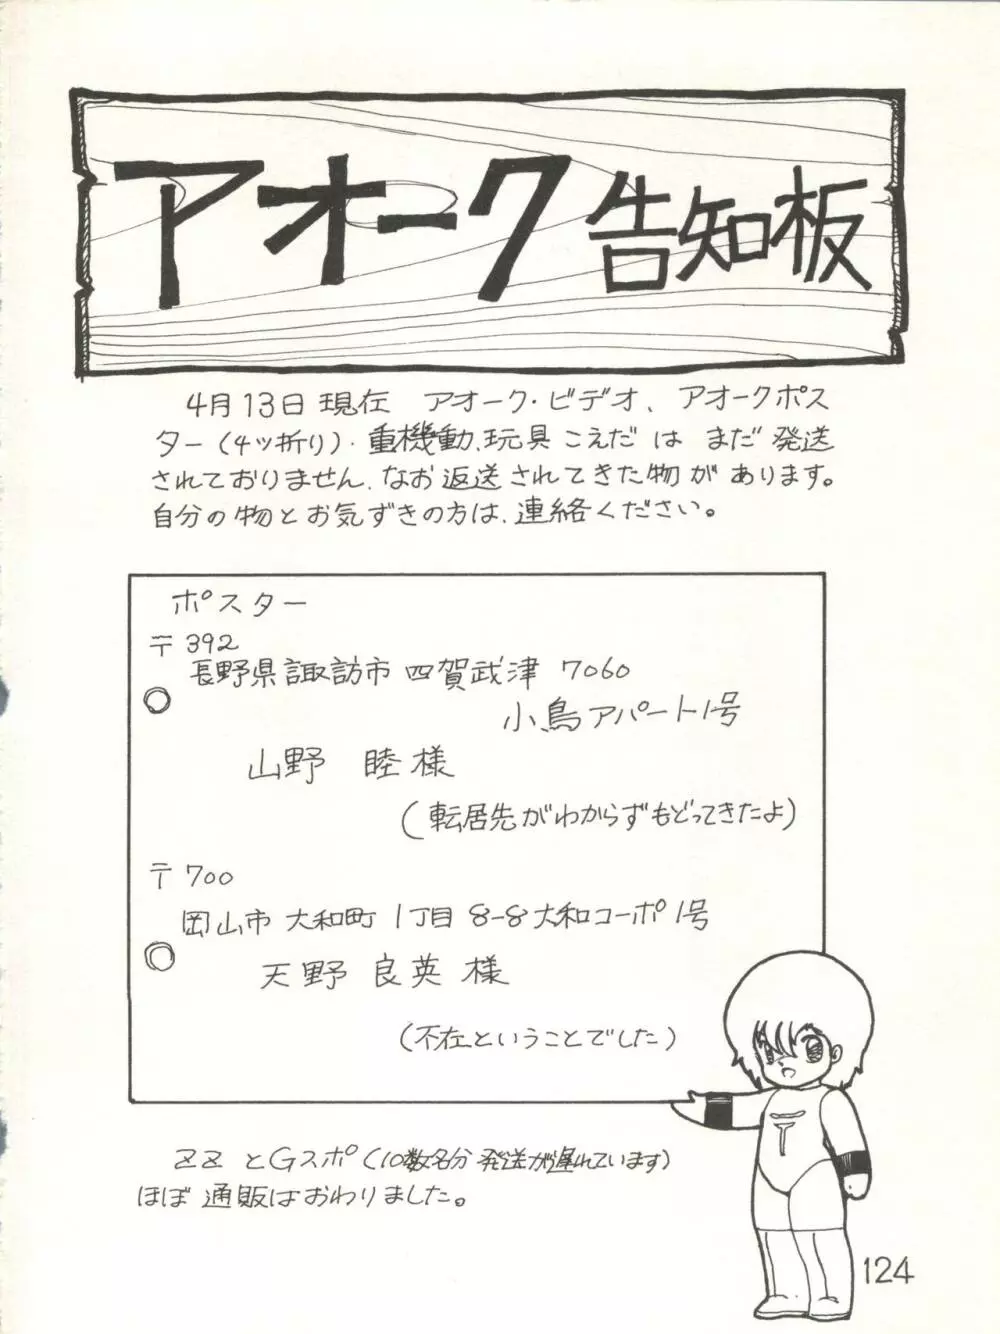 アオーク 告知板
4月13日現在 アオーク・ビデオ、アオークポス
ター(4ッ折り)・重機動、玩具こえだは まだ発送
されておりません、なお返送されてきた物があります。
自分の物とお気ずきの方は、連絡ください。
ポスター
〒392
長野県諏訪市四賀武津 7060
小鳥アパート1号
山野 睦様
(転居先がわからずもどってきたよ)
〒700
岡山市大和町1丁目8-8大和コーポ1号
天野良英様
(不在ということでした)
ZZとGスポ(10数名分発送が遅れています)
ほぼ通販はおわりました。
〒
124